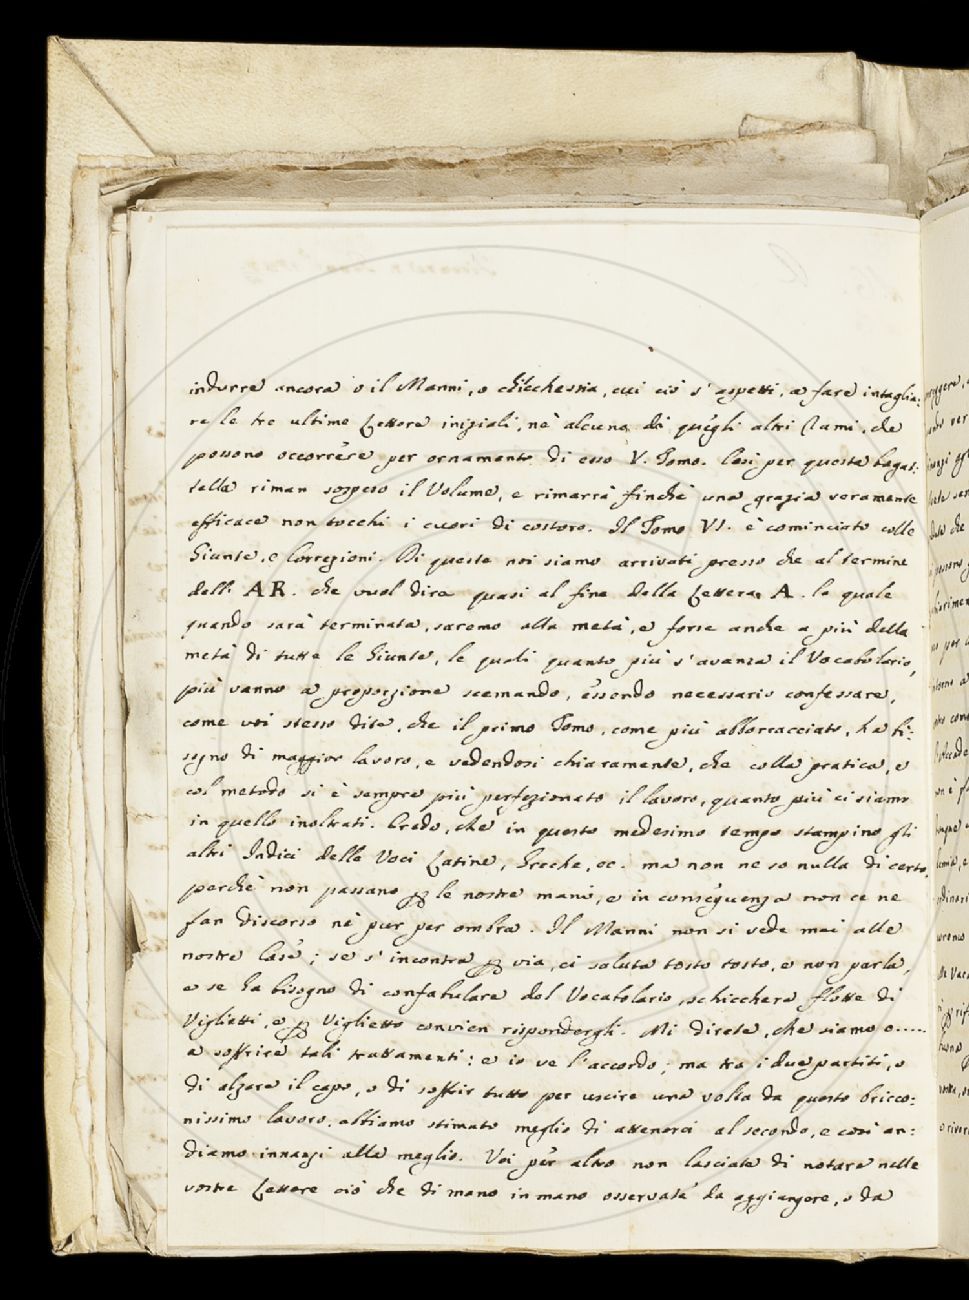 indurre ancora o il Manni, o chicchessia, cui ciò s'aspetti, a fare intaglia:
re le tre ultime Lettere iniziali, nè alcuno di quegli altri Rami, che
possono occorrere per ornamento di esso V. Tomo. Così per questa bagat:
tella riman sospeso il Volume, e rimarrà finchè una grazia veramente
efficace non tocchi i cuori di costoro. Il Tomo VI. è cominciato colle
Giunte, e Correzioni. Di queste noi siamo arrivati presso che al termine
dell' AR. che vuol dire quasi al fine della Lettera A. la quale
quando sarà terminata, saremo alla metà, e forse anche a più della
metà di tutte le Giunte, le quali quanto più s'avanza il Vocabolario,
più vanno a proporzione scemando, essendo necessario confessare,
come voi stesso dite, che il primo Tomo, come più abborracciato, ha bi:
sogno di maggior lavoro, e vedendosi chiaramente, che colla pratica, e
col metodo si è sempre più perfezionato il lavoro, quanto più ci siamo
in quello inoltrati. Credo, che in questo medesimo tempo stampino gli
altri Indici delle Voci Latine, Greche, ec. ma non ne so nulla di certo,
perchè non passano p le nostre mani, e in conseguenza non ce ne
fan discorso nè pur per ombra. Il Manni non si vede mai alle
nostre Case; se s'incontra p via, ci saluta tosto tosto, e non parla,
e se ha bisogno di confabulare del Vocabolario, schicchera flotte di
Viglietti, e p Viglietto convien rispondergli. Mi direte, che siamo o.....
a soffrire tali trattamenti: e io ve l'accordo; ma tra i due partiti, o
di alzare il capo, o di soffrir tutto per uscire una volta da questo bricco:
nissimo lavoro, abbiamo stimato meglio di attenerci al secondo, e così an:
diamo innanzi alla meglio. Voi per altro non lasciate di notare nelle
vostre Lettere ciò che di mano in mano osservate da aggiungere, o da